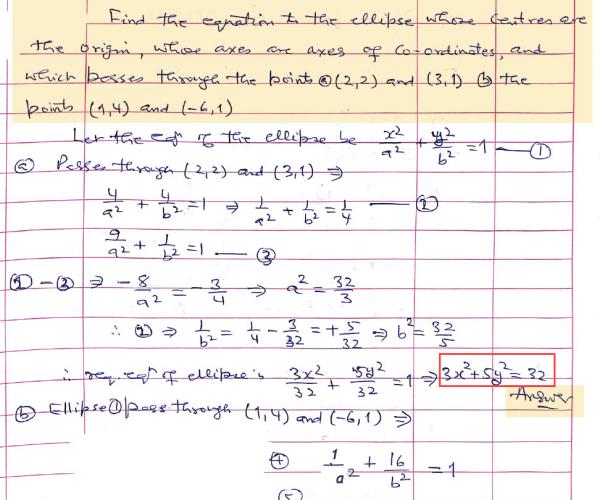 Find the equation to the ellipse whose Centres are
the origin, whose axes are axes of Co-ordinates, and
which passes through the points ⓐ (2,2) and (3,1) ⓑ the
points (1,4) and (-6,1)
Let the eqn of the ellipse be x²/a² + y²/b² = 1 — ①
ⓐ Passes through (2,2) and (3,1) ⇒
4/a² + 4/b² = 1 ⇒ 1/a² + 1/b² = 1/4 — ②
9/a² + 1/b² = 1 — ③
② - ③ ⇒ -8/a² = -3/4 ⇒ a² = 32/3
∴ ② ⇒ 1/b² = 1/4 - 3/32 = +5/32 ⇒ b² = 32/5
∴ req. eqn of ellipse is 3x²/32 + 5y²/32 = 1 ⇒ 3x²+5y² = 32
Answer
ⓑ Ellipse ① pass through (1,4) and (-6,1) ⇒
④ 1/a² + 16/b² = 1
⑤